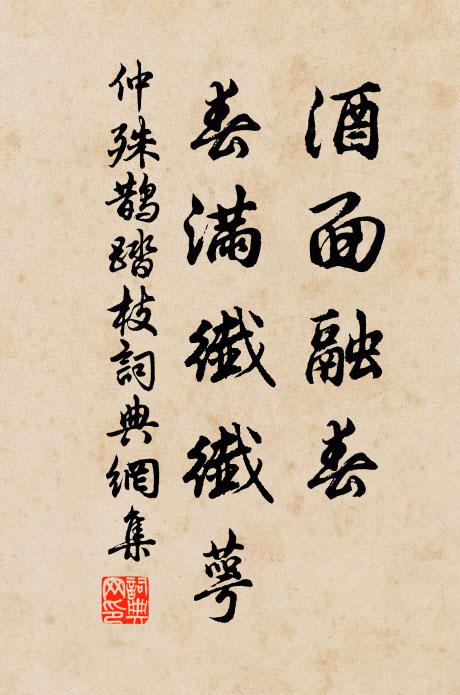 酒面融春
春满纖纖萼
仲殊鹊踏枝詞典網集
詞典网印